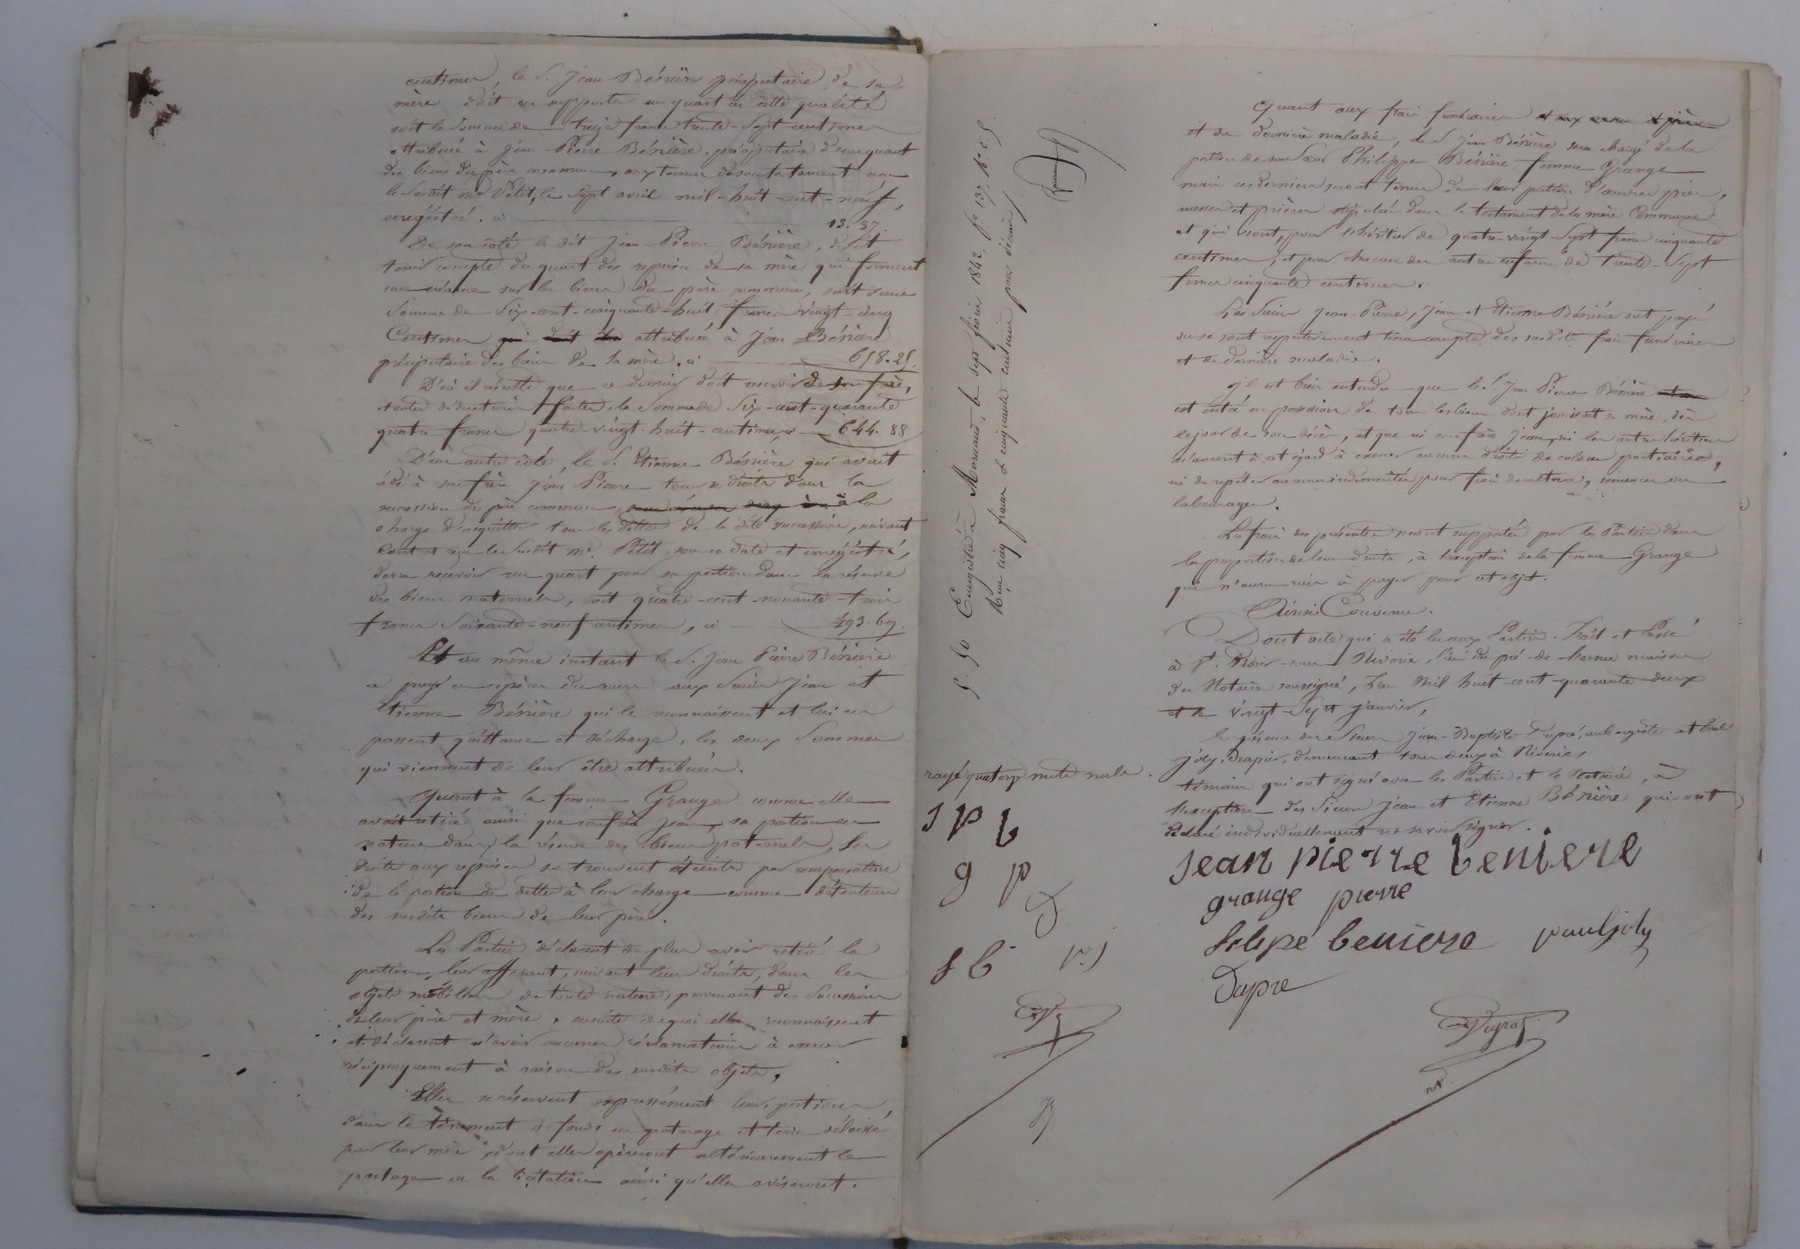 centimes, le S. Jean Bénière préciputaire de sa
mère doit en rapporter un quart en cette qualité
soit la somme de treize francs trente-sept centimes
attribuée à Jean Pierre Bénière, préciputaire d'un quart
des biens du père commun, aux termes de son testament reçu
le susdit me Petit, le sept avril mil-huit-cent-neuf,
enregistré. ci 13. 37.
De son côté le dit Jean Pierre Bénière, doit
tenir compte du quart des reprises de sa mère qui forment
une créance sur les biens du père commun, soit d'une
somme de six-cent-cinquante-huit francs vingt-cinq
centimes attribuée à Jean Bénière
préciputaire des biens de sa mère. ci 658.25.
D'où il résulte que ce dernier doit recevoir de son frère,
toutes déductions faites, la somme de six-cent-quarante
quatre francs quatre-vingt-huit-centimes, ci 644. 88
D'un autre côté, le S. Etienne Bénière qui avait
cédé à son frère Jean Pierre tous ses droits dans la
succession du père commun, à la
charge d'acquitter tous les dettes de la dite succession, suivant
contrat reçu le susdit me. Petit, sous sa date et enregistré,
devra recevoir un quart pour sa portion dans la réserve
des biens maternels, soit quatre-cent-nonante-trois
francs soixante-neuf centimes, ci 493.69.
Et au même instant le S. Jean Pierre Bénière
a payé en espèces du cours aux Sieurs Jean et
Etienne Bénière qui le reconnaissent et lui en
passent quittance et décharge, les deux sommes
qui viennent de leur être attribuées.
Quant à la femme Grange comme elle
avait retiré ainsi que son frère Jean, sa portion en
nature dans la réserve des biens paternels, les
droits aux reprises se trouvent éteints par compensation
de la portion de dette à leur charge comme détenteurs
des susdits biens de leur père.
Les Parties déclarent de plus avoir retiré la
portion leur afférant, suivant leurs droits, dans les
objets mobiliers de toute nature, provenant des successions
de leur père et mère, ensuite de quoi elles reconnaissent
et déclarent n'avoir aucunes réclamations à exercer
réciproquement à raison des susdits objets.
Elles se réservent expressément leurs portions
dans le tènement de fonds en paturage et terre délaissé
par leur mère, dont elles opéreront ultérieurement le
partage ou la licitation ainsi qu'elles aviseront.
5. 50 Enregistré à Mornand, le sept février 1842, fo. 137, Ro. c. 5.
Reçu cinq francs & cinquante centimes pour décime
rayé quatorze mots nuls.
J P b
g p
D
f b P.J
Quant aux frais funéraires
et de dernière maladie, le S. Jean Bénière sera chargé de la
portion de sa sœur Philippe Bénière femme Grange
mais ces derniers seront tenus de leur portion d'œuvres pies,
messes et prières stipulées dans le testament de la mère commune
et qui sont, pour l'héritier de quatre-vingt-sept francs cinquante
centimes, et pour chacun des autres enfans de trente-sept
francs cinquante centimes.
Les Sieurs Jean-Pierre, Jean et Etienne Bénière ont payé
ou se sont respectivement tenu compte des susdits frais funéraires
et de dernière maladie.
Il est bien entendu que le S. Jean Pierre Bénière
est entré en possession de tous les biens dont jouissait sa mère, dès
le jour de son décès, et que ni son frère Jean, ni les autres héritiers
n'auront à cet égard à exercer aucuns droits de colons partiaires,
ni de répéter aucunes indemnités pour frais de culture, semences ou
labourages.
Les frais des présentes seront supportés par les Parties dans
la proportion de leurs droits, à l'exception de la femme Grange
qui n'aura rien à payer pour cet objet.
Ainsi Convenu.
Dont acte qui a été lu aux Parties. Fait et Passé
à St. Didier-sous-Riverie, lieu du pré-de-lorme maison
du Notaire soussigné, l'an mil huit-cent-quarante-deux
et le vingt-sept janvier,
En présence de Sieurs Jean-Baptiste Dupré, aubergiste et Paul
Joly, Drapier, demeurant tous deux à Riverie,
témoins qui ont signé avec les Parties et le Notaire, à
l'exception des Sieurs Jean et Etienne Bénière qui ont
déclaré individuellement ne savoir signer.
Jean pierre beniere
grange pierre
felipe beniere paul joly
Dupre